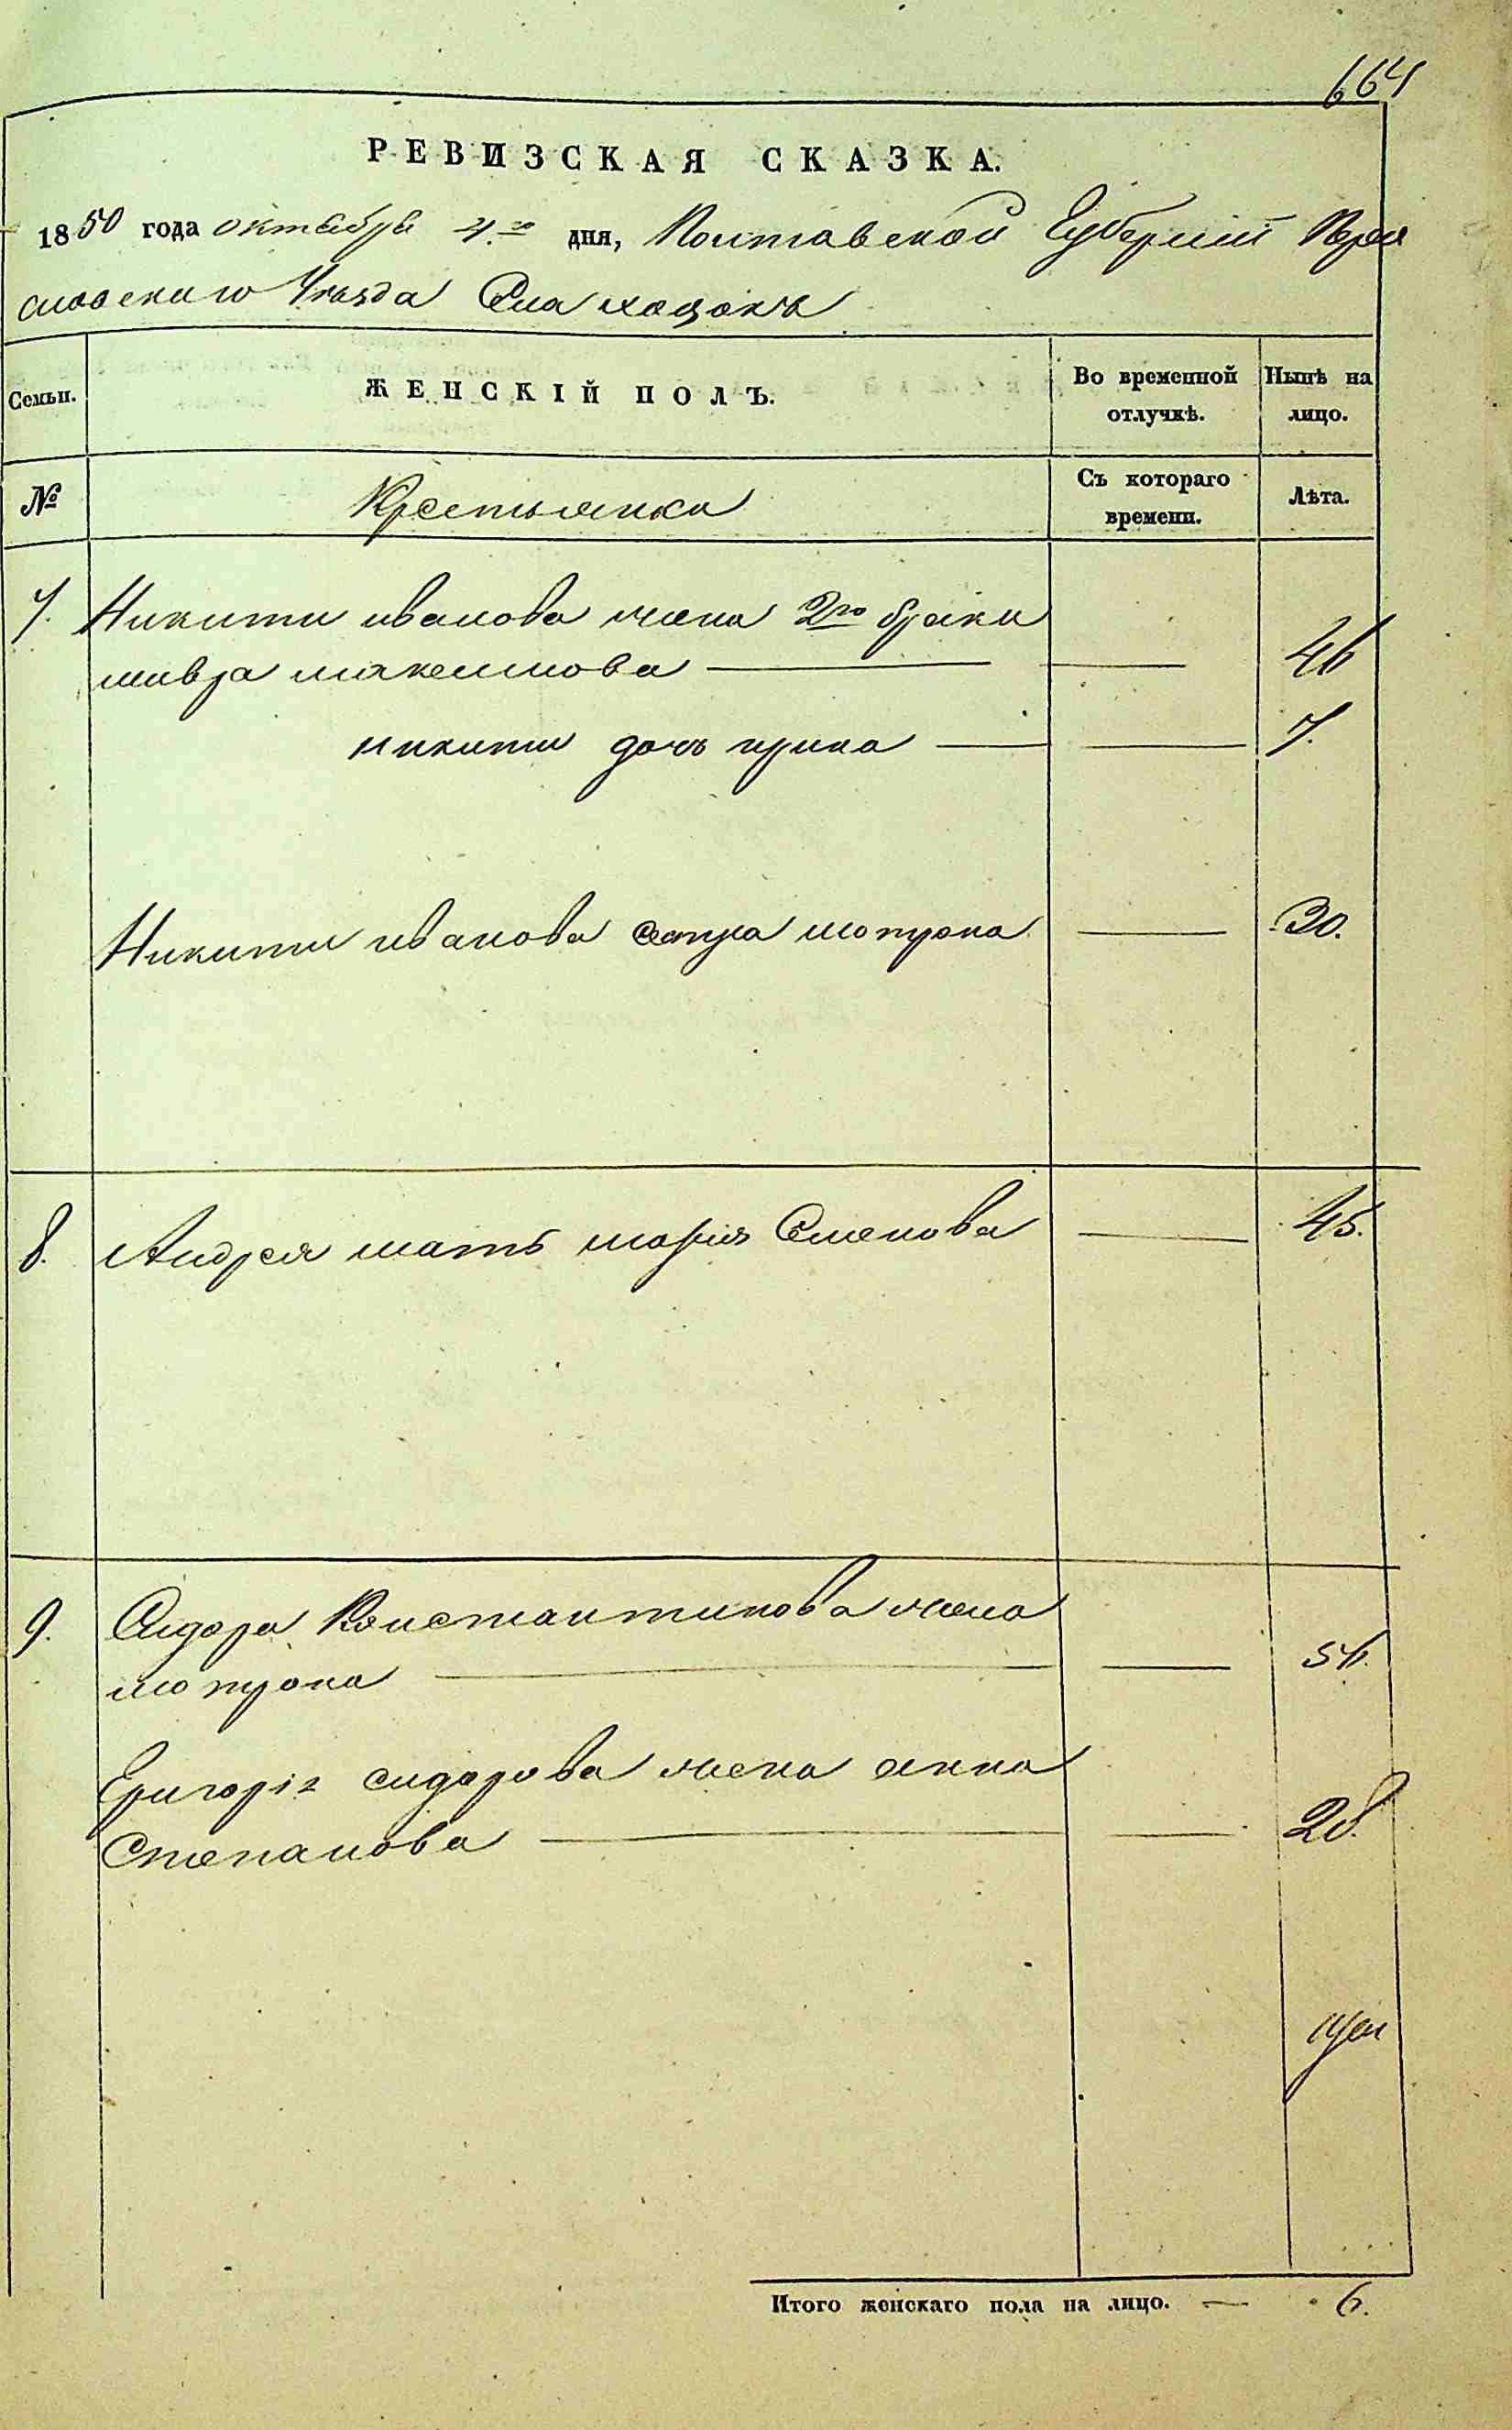 664
РЕВИЗСКАЯ СКАЗКА.
1850 года октября 4.го дня, Полтавской Губернии Перея
славскаго Уезда Села хоцокъ
Семьи.
ЖЕНСКІЙ ПОЛЪ.
Во временной
отлучкѣ.
Нынѣ на
лицо.
№
Крестьянка
Съ котораго
времени.
Лѣта.
7. Никиты иванова жена 2го брака
мавра максимова — — 46
никиты дочь ирина — — 7.
Никиты иванова сестра мотрона — 30.
8. Андрея мать марія Семенова — 45.
9. Сидора Константинова жена
мотрона — — 56.
Григорія сидорова жена анна
Степанова — — 28.
Итого женскаго пола на лицо. — 6.